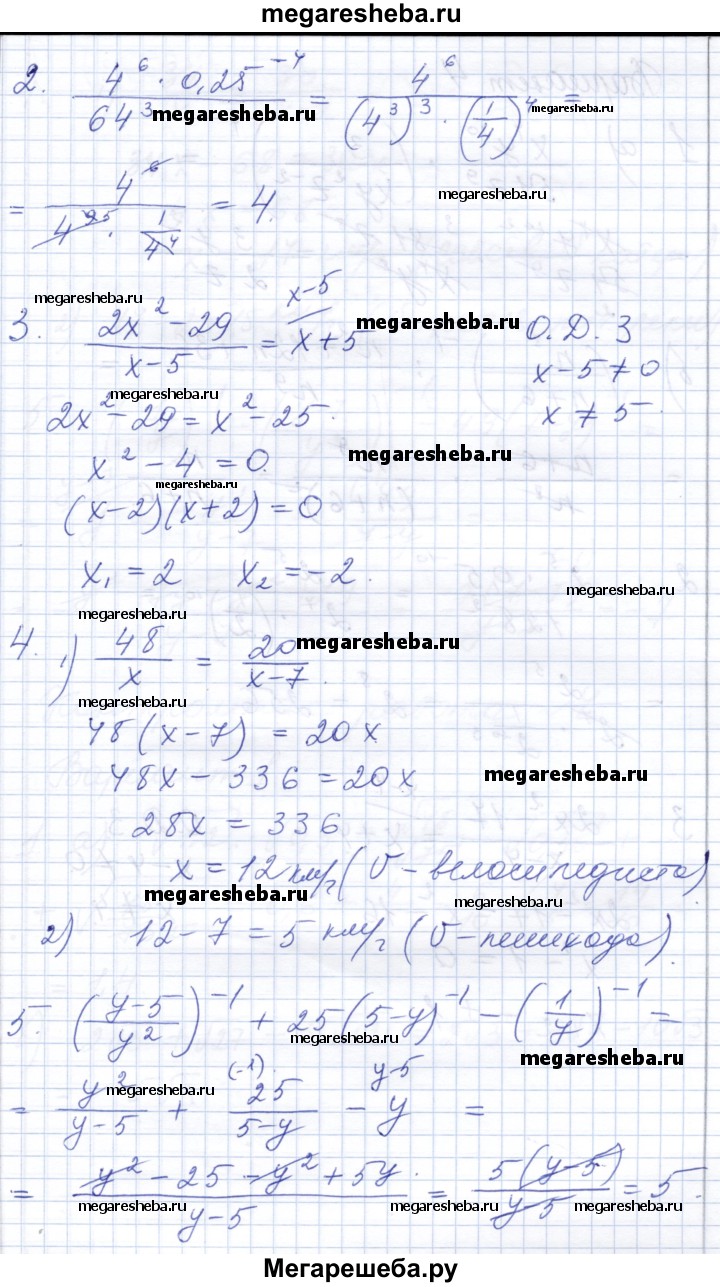 megaresheba.ru
2. (4^6 · 0,25^-4) / 64^3 = 4^6 / ((4^3)^3 · (1/4)^4) =
megaresheba.ru megaresheba.ru
megaresheba.ru
= 4^6 / (4^9 5 · 1/4^4) = 4.
megaresheba.ru
3. (2x^2 - 29) / (x - 5) = x + 5 \ x-5 О.Д.З
megaresheba.ru megaresheba.ru
x - 5 ≠ 0
megaresheba.ru
2x^2 - 29 = x^2 - 25. x ≠ 5.
x^2 - 4 = 0.
megaresheba.ru
megaresheba.ru
(x-2)(x+2) = 0
x₁ = 2 x₂ = -2.
megaresheba.ru
megaresheba.ru
4. 1) 48/x = 20/(x-7).
megaresheba.ru
megaresheba.ru
48(x-7) = 20x
48x - 336 = 20x
megaresheba.ru
28x = 336
x = 12 км/г (V - велосипедиста)
megaresheba.ru megaresheba.ru
2) 12 - 7 = 5 км/г (V - пешехода).
5. ((y-5)/y^2)^-1 + 25(5-y)^-1 - (1/y)^-1 =
megaresheba.ru
= y^2/(y-5) + 25/(5-y) (-1) - y \ y-5 =
megaresheba.ru
= (y^2 - 25 - y^2 + 5y) / (y-5) = 5(y-5)/(y-5) = 5.
megaresheba.ru megaresheba.ru megaresheba.ru
Мегарешеба.ру